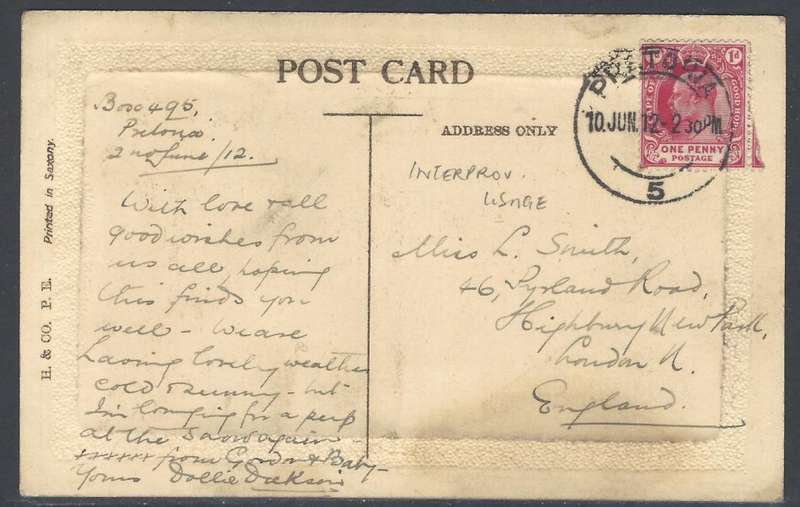 POST CARD
Box 495,
Pretoria.
2nd June/12.
With love & all
good wishes from
us all, hoping
this finds you
well - We are
having lovely weather
cold & sunny - but
I'm longing for a peep
at the snow again -
xxxxxx from Gordon & Baby
Yours Dollie Dickson
ADDRESS ONLY
INTERPROV.
USAGE
Miss L. Smith,
46, Pyrland Road,
Highbury New Park,
London N.
England.
PRETORIA
10.JUN.12-2 30PM
5
1d 1d
GOOD HOPE
ONE PENNY
POSTAGE
H. & CO. P. E. Printed in Saxony.